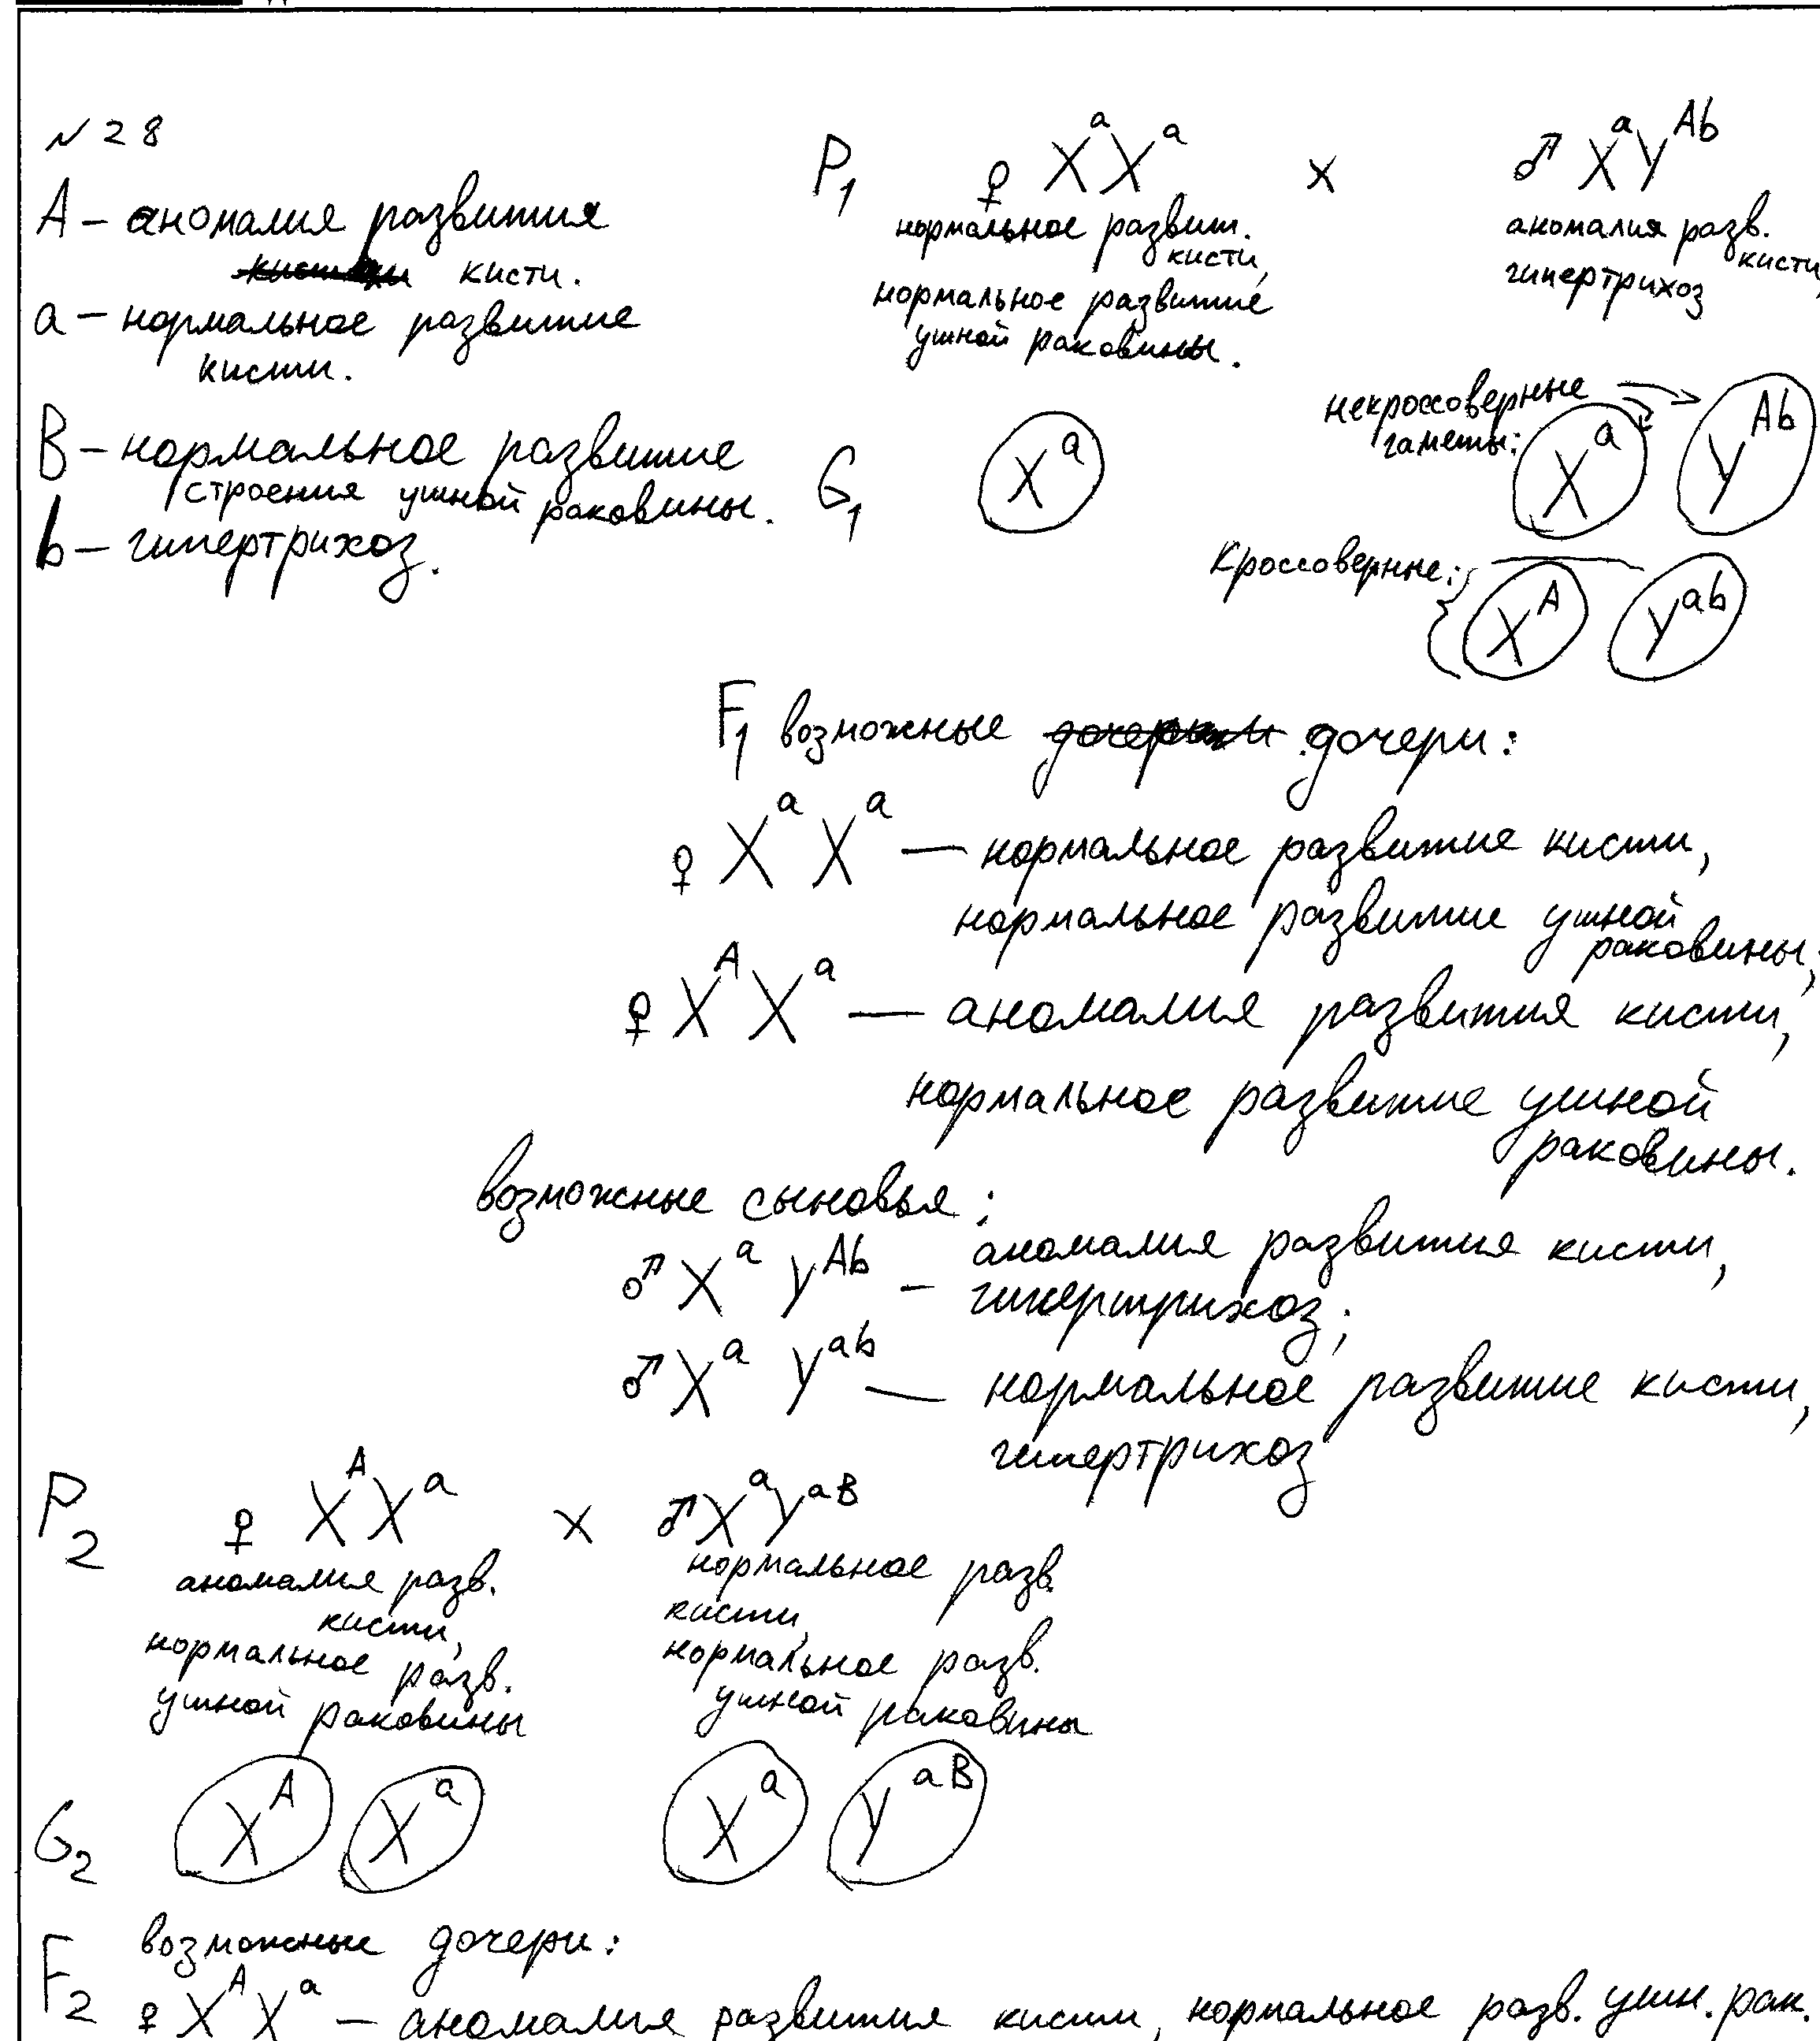 №28
A – аномалия развития
кисти.
a – нормальное развитие
кисти.
B – нормальное развитие
строения ушной раковины.
b – гипертрихоз.
P₁ ♀ XᵃXᵃ x ♂ XᵃYᴬᵇ
нормальное развит.
кисти,
нормальное развитие
ушной раковины.
аномалия разв.
кисти,
гипертрихоз
некроссоверные
гаметы:
G₁ Xᵃ Xᵃ Yᴬᵇ
Кроссоверные: Xᴬ Yᵃᵇ
F₁ возможные дочери:
♀ XᵃXᵃ — нормальное развитие кисти,
нормальное развитие ушной
раковины;
♀ XᴬXᵃ — аномалия развития кисти,
нормальное развитие ушной
раковины.
возможные сыновья:
♂ Xᵃ Yᴬᵇ – аномалия развития кисти,
гипертрихоз;
♂ Xᵃ Yᵃᵇ — нормальное развитие кисти,
гипертрихоз
P₂ ♀ XᴬXᵃ x ♂ XᵃYᵃᴮ
аномалия разв.
кисти,
нормальное разв.
ушной раковины
нормальное разв.
кисти,
нормальное разв.
ушной раковины
G₂ Xᴬ Xᵃ Xᵃ Yᵃᴮ
F₂ возможные дочери:
♀ XᴬXᵃ — аномалия развития кисти, нормальное разв. ушн. рак.